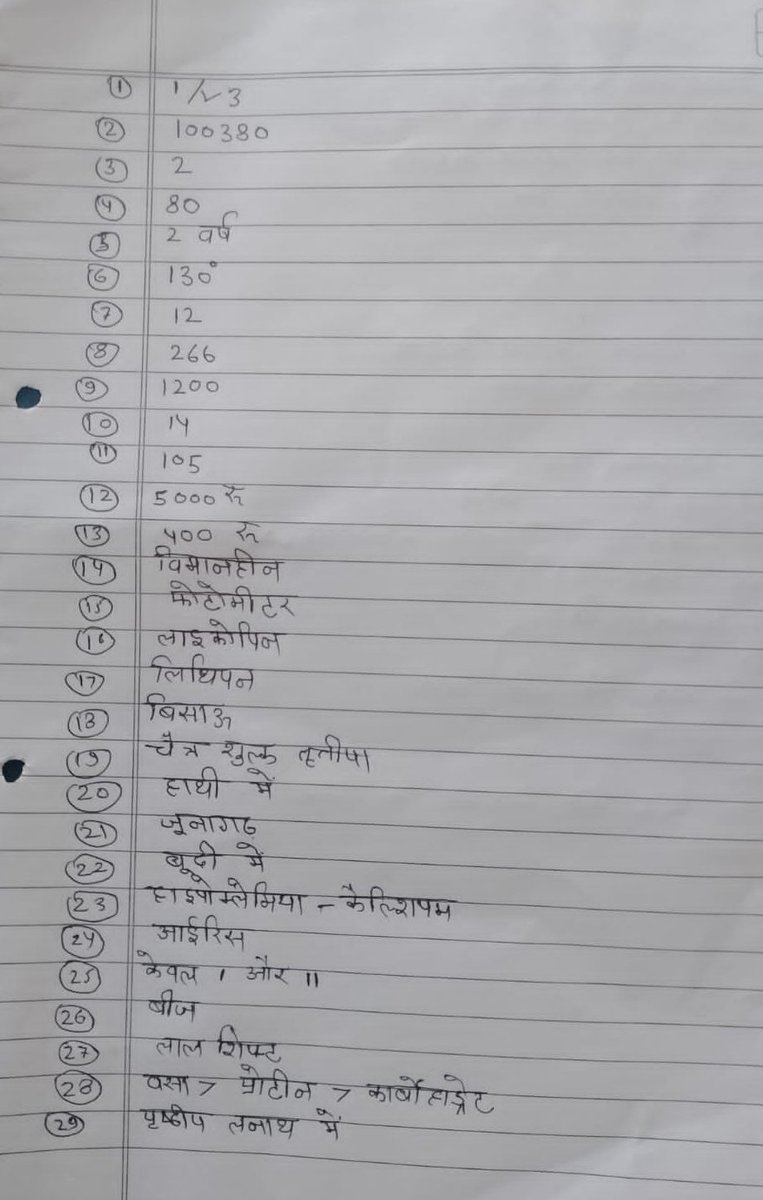 ① 1/√3
② 100380
③ 2
④ 80
⑤ 2 वर्ष
⑥ 130°
⑦ 12
⑧ 266
⑨ 1200
⑩ 14
⑪ 105
⑫ 5000 रू
⑬ 400 रू
⑭ विमानहीन
⑮ फोटोमीटर
⑯ लाइकोपिन
⑰ लिथियन
⑱ बिसाऊ
⑲ चैत्र शुल्क तृतीया
⑳ हाथी में
㉑ जूनागढ़
㉒ बूदी में
㉓ - कैल्शियम
㉔ आईरिस
㉕ केवल । और ॥
㉖ बीज
㉗ लाल शिफ्ट
㉘ वसा > प्रोटीन > कार्बोहाड्रेट
㉙ पृष्ठीय तनाव में